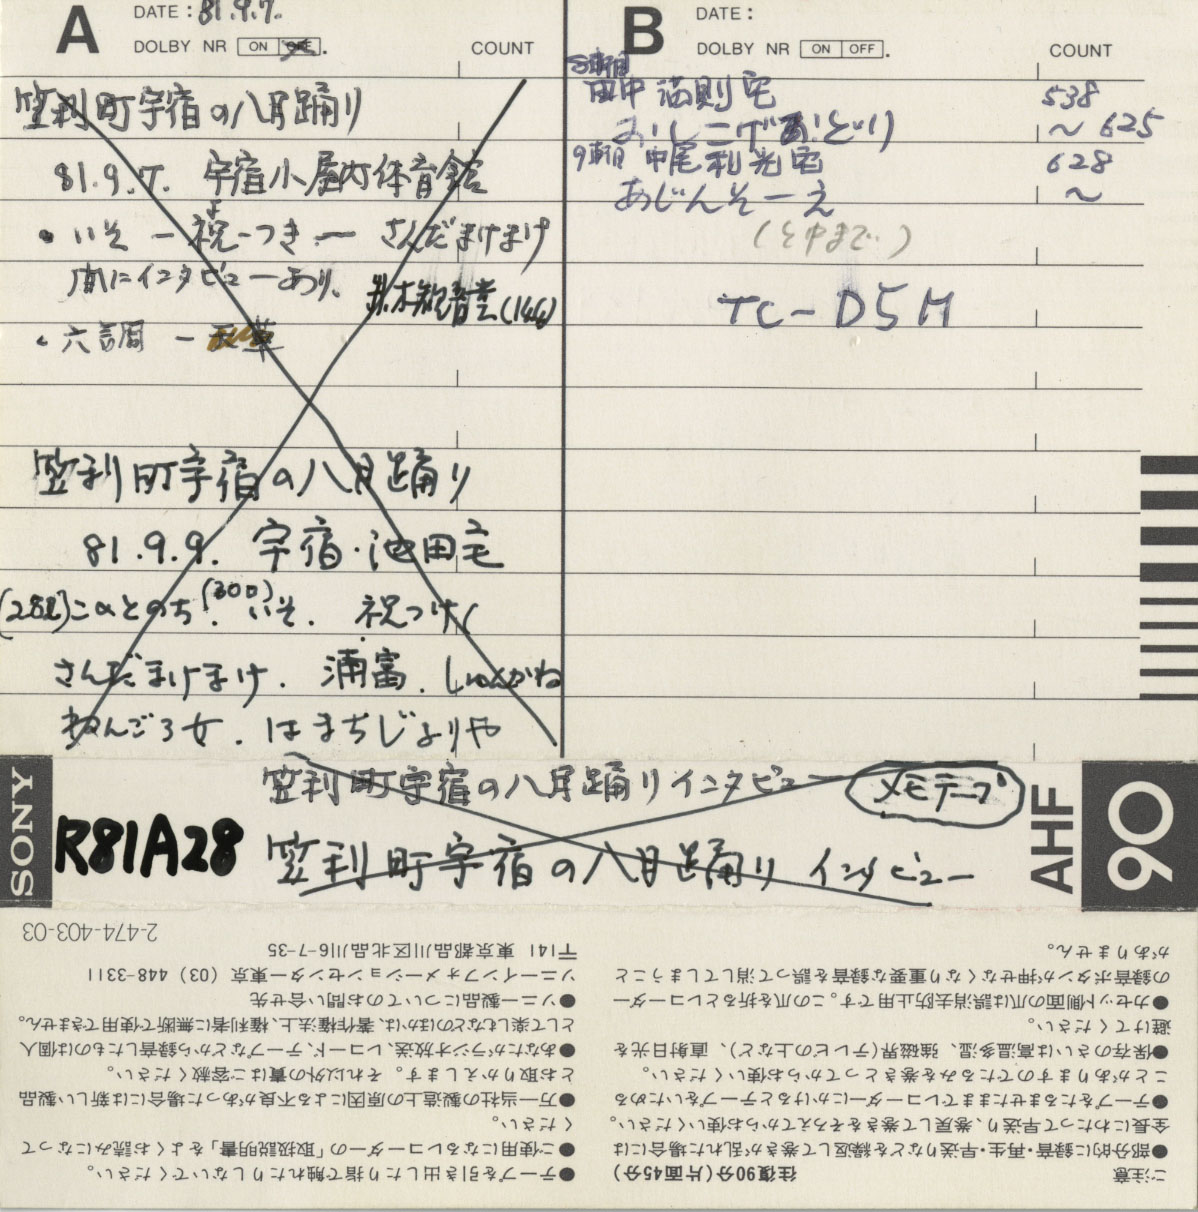 A
DATE : 81.9.7.
DOLBY NR ON OFF.
COUNT
笠利町宇宿の八月踊り
81.9.7. 宇宿小屋内体育館
• いそ ー 祝つき ー さんだまけまけ
よ
間にインタビューあり、
(144)
• 六調 ー
笠利町宇宿の八月踊り
81.9.9. 宇宿・池田宅
(282) のち (300) いそ. 祝つけ
さんだまけまけ. 浦富. しゅんかね
ねんごろ女. はまちじょりや
B
DATE :
DOLBY NR ON OFF.
COUNT
8軒目
田中満則宅 538
おしこげあどり ～ 625
9軒目 中尾利光宅 628
あじんそーえ ～
(途中まで.)
TC-D5M
SONY
R81A28
笠利町宇宿の八月踊りインタビュー
メモテープ
笠利町宇宿の八月踊り インタビュー
AHF
90
ご注意
往復90分(片面45分)
●部分的に録音・再生・早送りなどを繰返して巻きが乱れた場合には
全長にわたって早送り、巻戻して巻きをそろえてからお使いください。
●テープをたるませたままでレコーダーにかけるとテープをいためる
ことがありますのでたるみを巻きとってからお使いください。
●保存のさいは高温多湿、強磁界(テレビの上など)、直射日光を
避けてください。
●カセット側面の爪は誤消去防止用です。この爪を折るとレコーダー
の録音ボタンが押せなくなり重要な録音を誤って消してしまうこと
がありません。
●テープを引き出したり指で触れたりしないでください。
●ご使用になるレコーダーの「取扱説明書」をよくお読みになって
ください。
●万一当社の製造上の原因による不良があった場合には新しい製品
とお取りかえします。それ以外の責はご容赦ください。
●あなたがラジオ放送、レコード、テープなどから録音したものは個人
として楽しむなどのほかは、著作権法上、権利者に無断で使用できません。
●ソニー製品についてのお問い合せ先
ソニーインフォメーションセンター東京 (03) 448-3311
〒141 東京都品川区北品川6-7-35
2-474-403-03